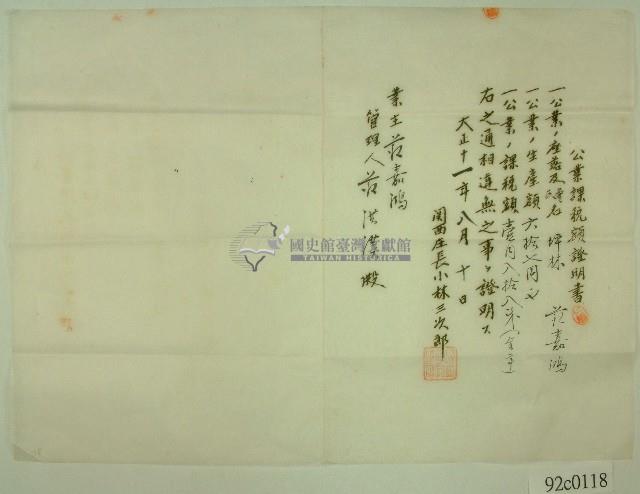 公業課税額證明書
一公業ノ座落及 名 坪林 范嘉鴻
一公業ノ生産額 六拾七円也
一公業ノ課税額 壹円八拾八
右之通相違無之事ヲ證明ス
大正十一年八月十日
関西庄長小林三次郎
業主范嘉鴻
管理人范洪 殿
國史館臺灣文獻館
TAIWAN HISTORICA
92c0118